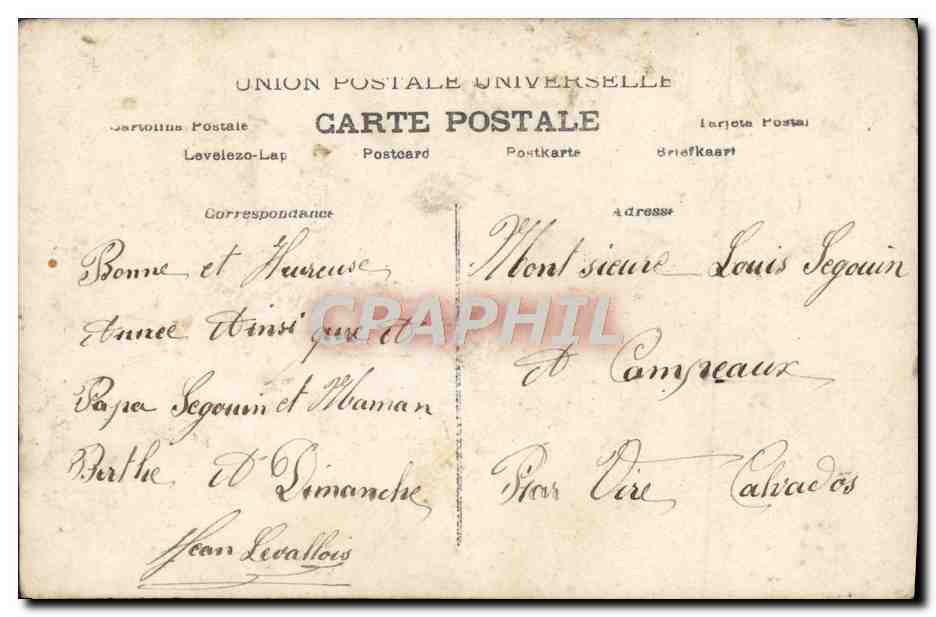 UNION POSTALE UNIVERSELLE
CARTE POSTALE
Cartolina Postale
Tarjeta Postal
Levelezo-Lap
Postcard
Postkarte
Briefkaart
Correspondance
Adresse
Bonne et Hureuse
Annee Ainsi que A
Papa Segouin et Maman
Berthe A Dimanche
Jean Levallois
Montsieure Louis Segouin
A Campeaux
Par Vire Calvados
CRAPHIL